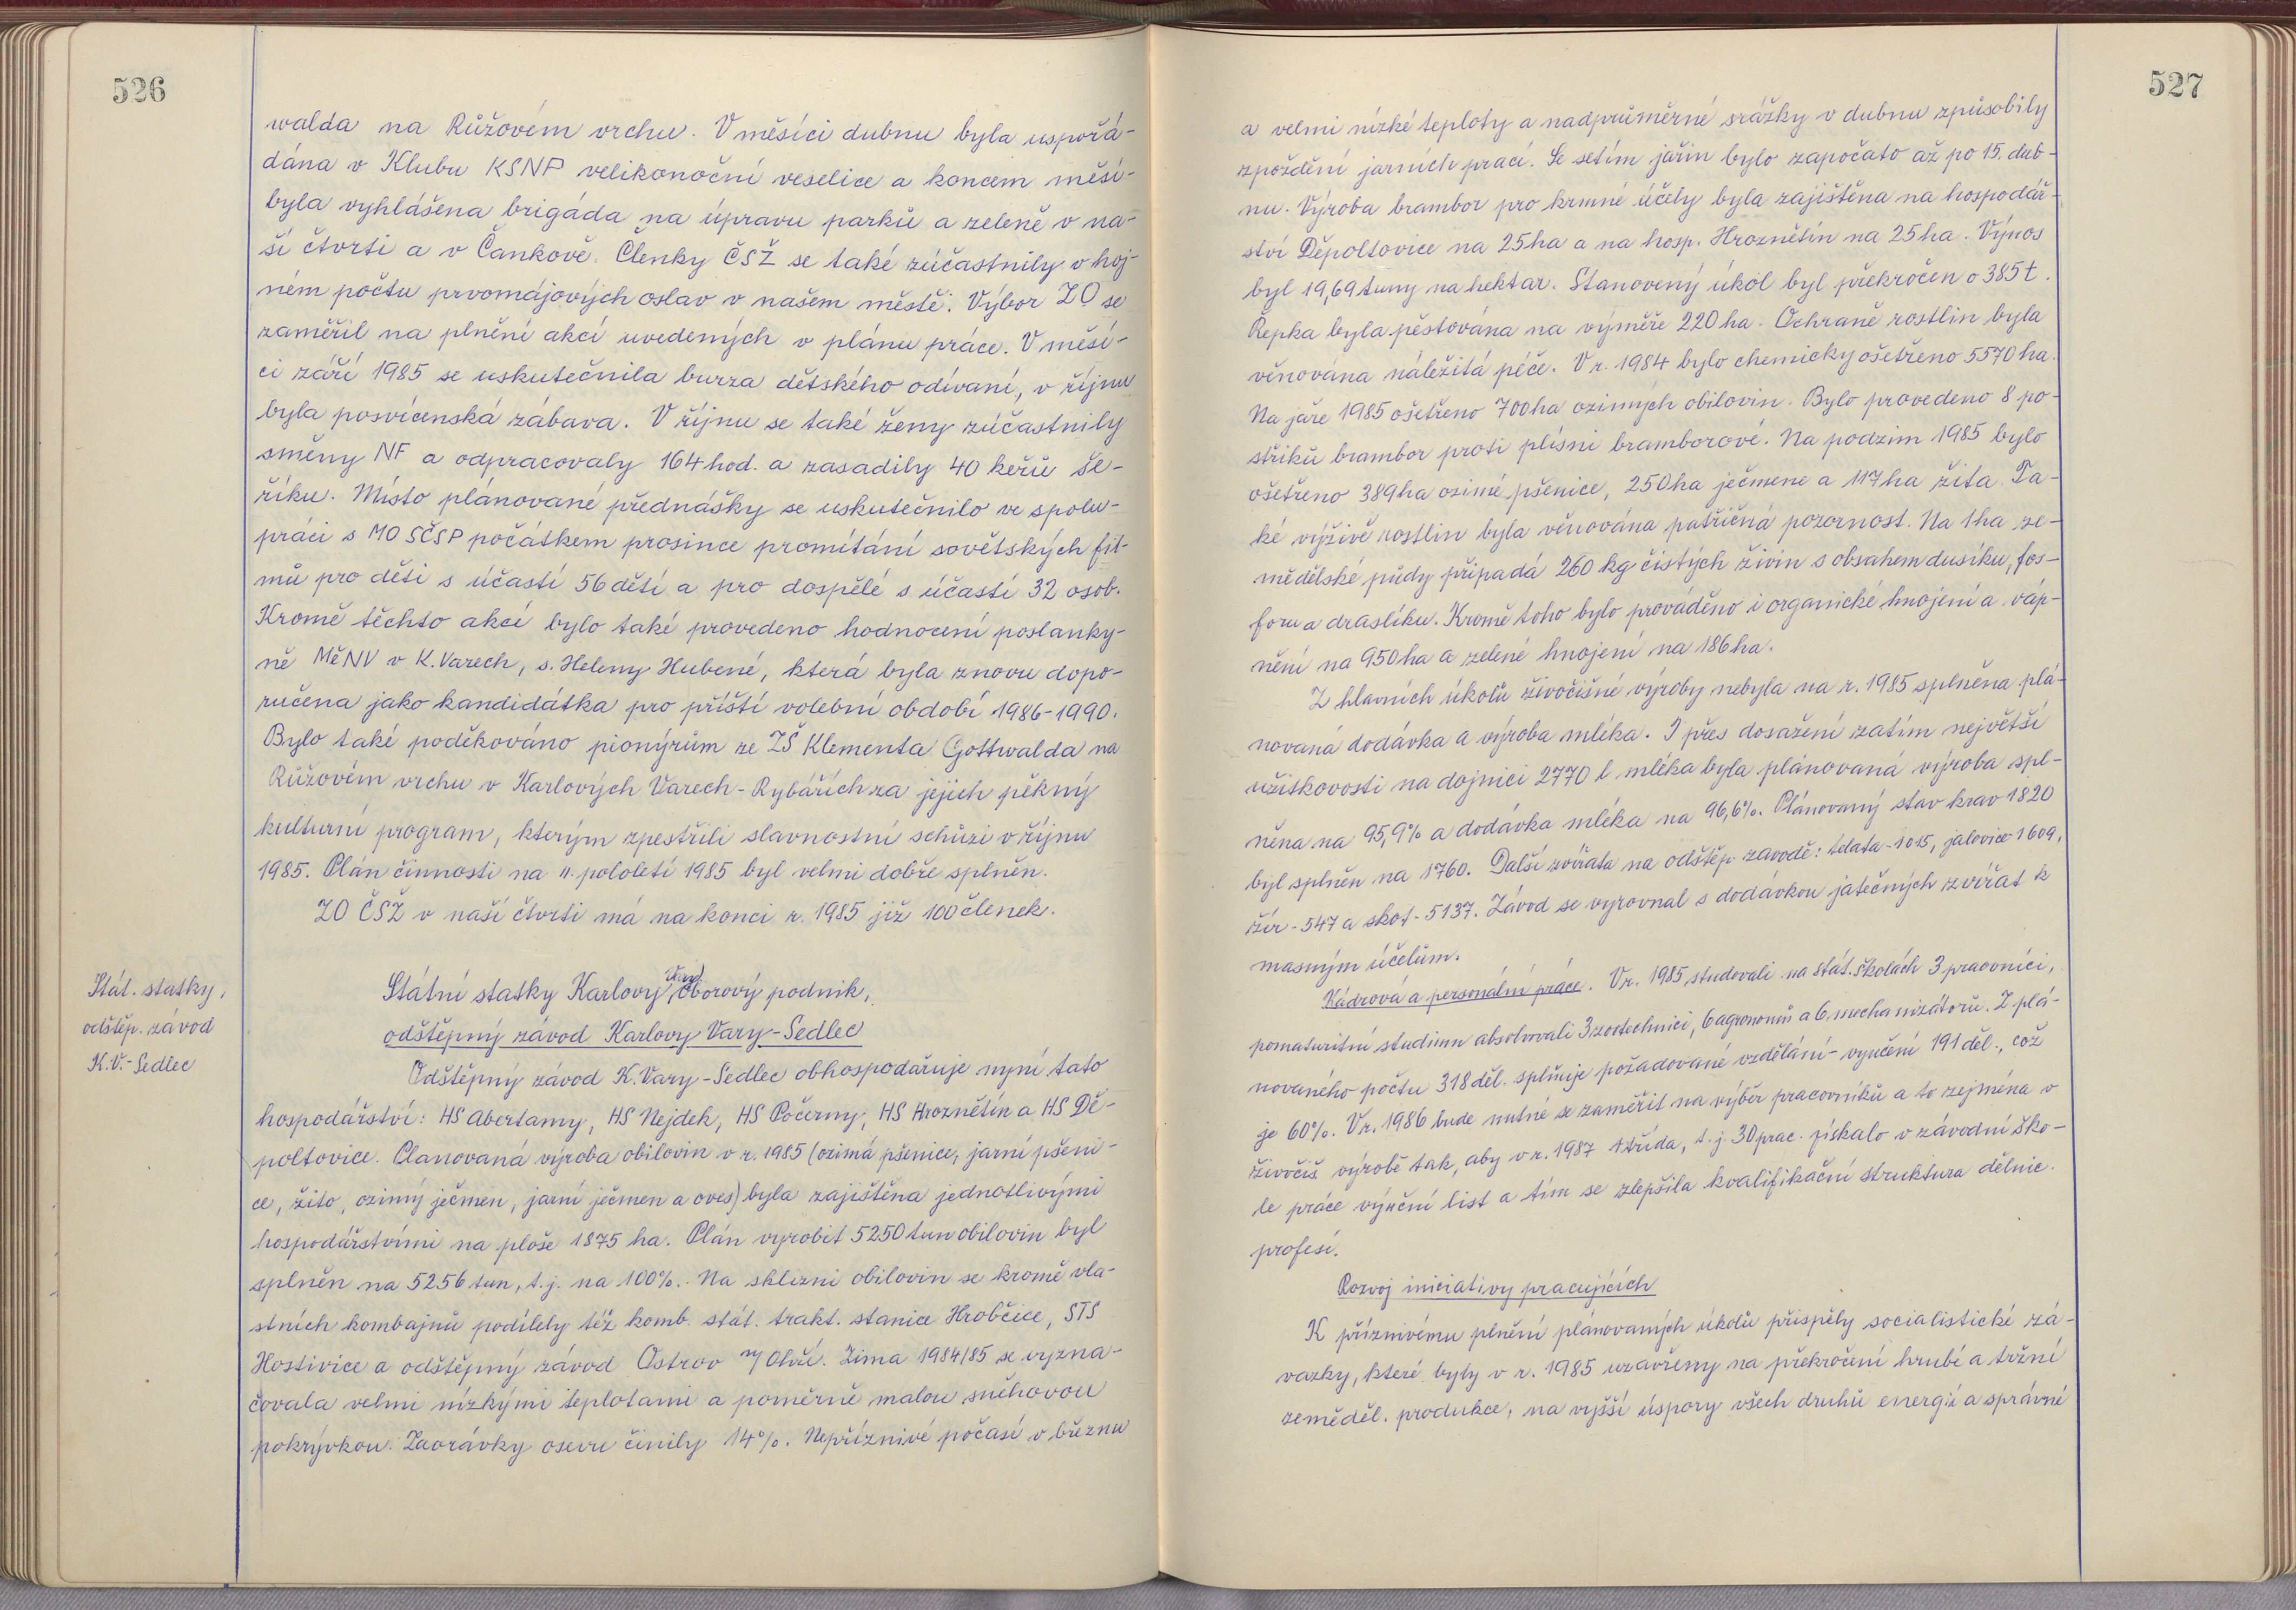 526
walda na Růžovém vrchu. V měsíci dubnu byla uspořá-
dána v Klubu KSNP velikonoční veselice a koncem měsí-
byla vyhlášena brigáda na úpravu parků a zeleně v na-
ší čtvrti a v Čankově. Členky ČSŽ se také zúčastnily v hoj-
ném počtu prvomájových oslav v našem městě. Výbor ZO se
zaměřil na plnění akcí uvedených v plánu práce. V měsí-
ci září 1985 se uskutečnila burza dětského odívaní, v říjnu
byla posvícenská zábava. V říjnu se také ženy zúčastnily
směny NF a odpracovaly 164 hod. a zasadily 40 keřů še-
říku. Místo plánované přednášky se uskutečnilo ve spolu-
práci s MO SČSP počátkem prosince promítání sovětských fil-
mů pro děti s účastí 56 dětí a pro dospělé s účastí 32 osob.
Kromě těchto akcí bylo také provedeno hodnocení poslanky-
ně MěNV v K. Varech, s. Heleny Hubené, která byla znovu dopo-
ručena jako kandidátka pro příští volební období 1986-1990.
Bylo také poděkováno pionýrům ze ZŠ Klementa Gottwalda na
Růžovém vrchu v Karlových Varech-Rybářích za jejich pěkný
kulturní program, kterým zpestřili slavnostní schůzi v říjnu
1985. Plán činnosti na II. pololetí 1985 byl velmi dobře splněn.
ZO ČSŽ v naší čtvrti má na konci r. 1985 již 100 členek.
Stát. statky,
odštěp. závod
K.V.-Sedlec
Státní statky Karlovy Vary, oborový podnik,
odštěpný závod Karlovy Vary-Sedlec
Odštěpný závod K. Vary-Sedlec obhospodařuje nyní tato
hospodářství: HS Abertamy, HS Nejdek, HS Počerny, HS Hroznětín a HS Dě-
poltovice. Planovaná výroba obilovin v r. 1985 (ozimá pšenice, jarní pšeni-
ce, žito, ozimý ječmen, jarní ječmen a oves) byla zajištěna jednotlivými
hospodářstvími na ploše 1875 ha. Plán vyrobit 5250 tun obilovin byl
splněn na 5256 tun, t.j. na 100%. Na sklizni obilovin se kromě vla-
stních kombajnů podílely též komb. stát. trakt. stanice Hrobčice, STS
Hostivice a odštěpný závod Ostrov n/Ohří. Zima 1984/85 se vyzna-
čovala velmi nízkými teplotami a poměrně malou sněhovou
pokrývkou. Zaorávky osevu činily 14%. Nepříznivé počasí v březnu
527
a velmi nízké teploty a nadprůměrné srážky v dubnu způsobily
zpoždění jarních prací. Se setím jařin bylo započato až po 15. dub-
nu. Výroba brambor pro krmné účely byla zajištěna na hospodář-
ství Děpoltovice na 25 ha a na hosp. Hroznětín na 25 ha. Výnos
byl 19,69 tuny na hektar. Stanovený úkol byl překročen o 385 t.
Řepka byla pěstována na výměře 220 ha. Ochraně rostlin byla
věnována náležitá péče. V r. 1984 bylo chemicky ošetřeno 5570 ha.
Na jaře 1985 ošetřeno 700 ha ozimných obilovin. Bylo provedeno 8 po-
střiků brambor proti plísni bramborové. Na podzim 1985 bylo
ošetřeno 389 ha ozimé pšenice, 250 ha ječmene a 117 ha žita. Ta-
ké výživě rostlin byla věnována patřičná pozornost. Na 1 ha ze-
mědělské půdy připadá 260 kg čistých živin s obsahem dusíku, fos-
foru a draslíku. Kromě toho bylo prováděno i organické hnojení a váp-
nění na 950 ha a zelené hnojení na 186 ha.
Z hlavních úkolů živočišné výroby nebyla na r. 1985 splněna plá-
novaná dodávka a výroba mléka. I přes dosažení zatím největší
užitkovosti na dojnici 2770 l mléka byla plánovaná výroba spl-
něna na 95,9% a dodávka mléka na 96,6%. Plánovaný stav krav 1820
byl splněn na 1760. Další zvířata na odštěp. zavodě: telata-1015, jalovice 1609,
žír-547 a skot-5137. Závod se vyrovnal s dodávkou jatečných zvířat k
masným účelům.
Kádrová a personální práce. V r. 1985 studovali na stát. školách 3 pracovníci,
pomaturitní studium absolvovali 3 zootechnici, 6 agronomů a 6 mechanizátorů. Z plá-
novaného počtu 318 děl. splňuje požadované vzdělání-vyučení 191 děl., což
je 60%. V r. 1986 bude nutné se zaměřit na výběr pracovníků a to zejména v
živočiš. výrobě tak, aby v r. 1987 1 třída, t.j. 30 prac. získalo v závodní ško-
le práce výuční list a tím se zlepšila kvalifikační struktura dělnic.
profesí.
Rozvoj iniciativy pracujících
K příznivému plnění plánovaných úkolů přispěly socialistické zá-
vazky, které byly v r. 1985 uzavřeny na překročení hrubé a tržní
zeměděl. produkce, na vyšší úspory všech druhů energií a správné